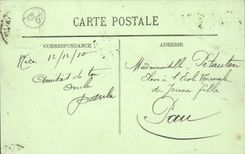 CARTE POSTALE
CORRESPONDANCE
Nice 12/12/10
Amitiés de ton
oncle
ADRESSE
Mademoiselle
à l'Ecole Normale
de jeunes filles
Pau